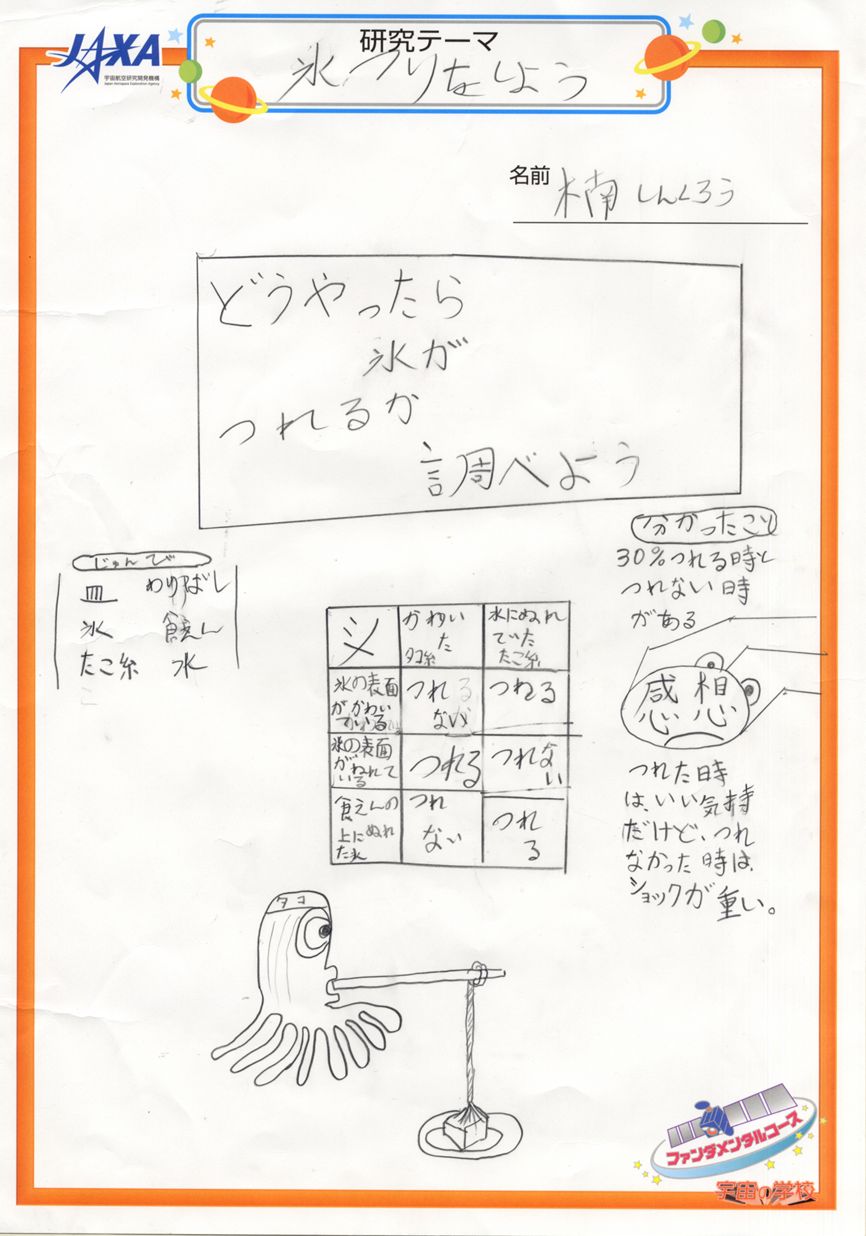 JAXA
宇宙航空研究開発機構
Japan Aerospace Exploration Agency
研究テーマ
氷つりをしよう
名前 楠 しんくろう
どうやったら
氷が
つれるか
調べよう
じゅんび
皿 わりばし
氷 食えん
たこ糸 水
分かったこと
30%つれる時と
つれない時
がある
かわい
た
タコ糸
水にぬれ
ていた
たこ糸
氷の表面
がかわい
ている
つれ
ない
つれる
氷の表面
がぬれて
いる
つれる
つれな
い
食えんの
上にぬれ
た氷
つれ
ない
つれ
る
感想
つれた時
は、いい気持
だけど、つれ
なかった時は、
ショックが重い。
タコ
ファンダメンタルコース
宇宙の学校